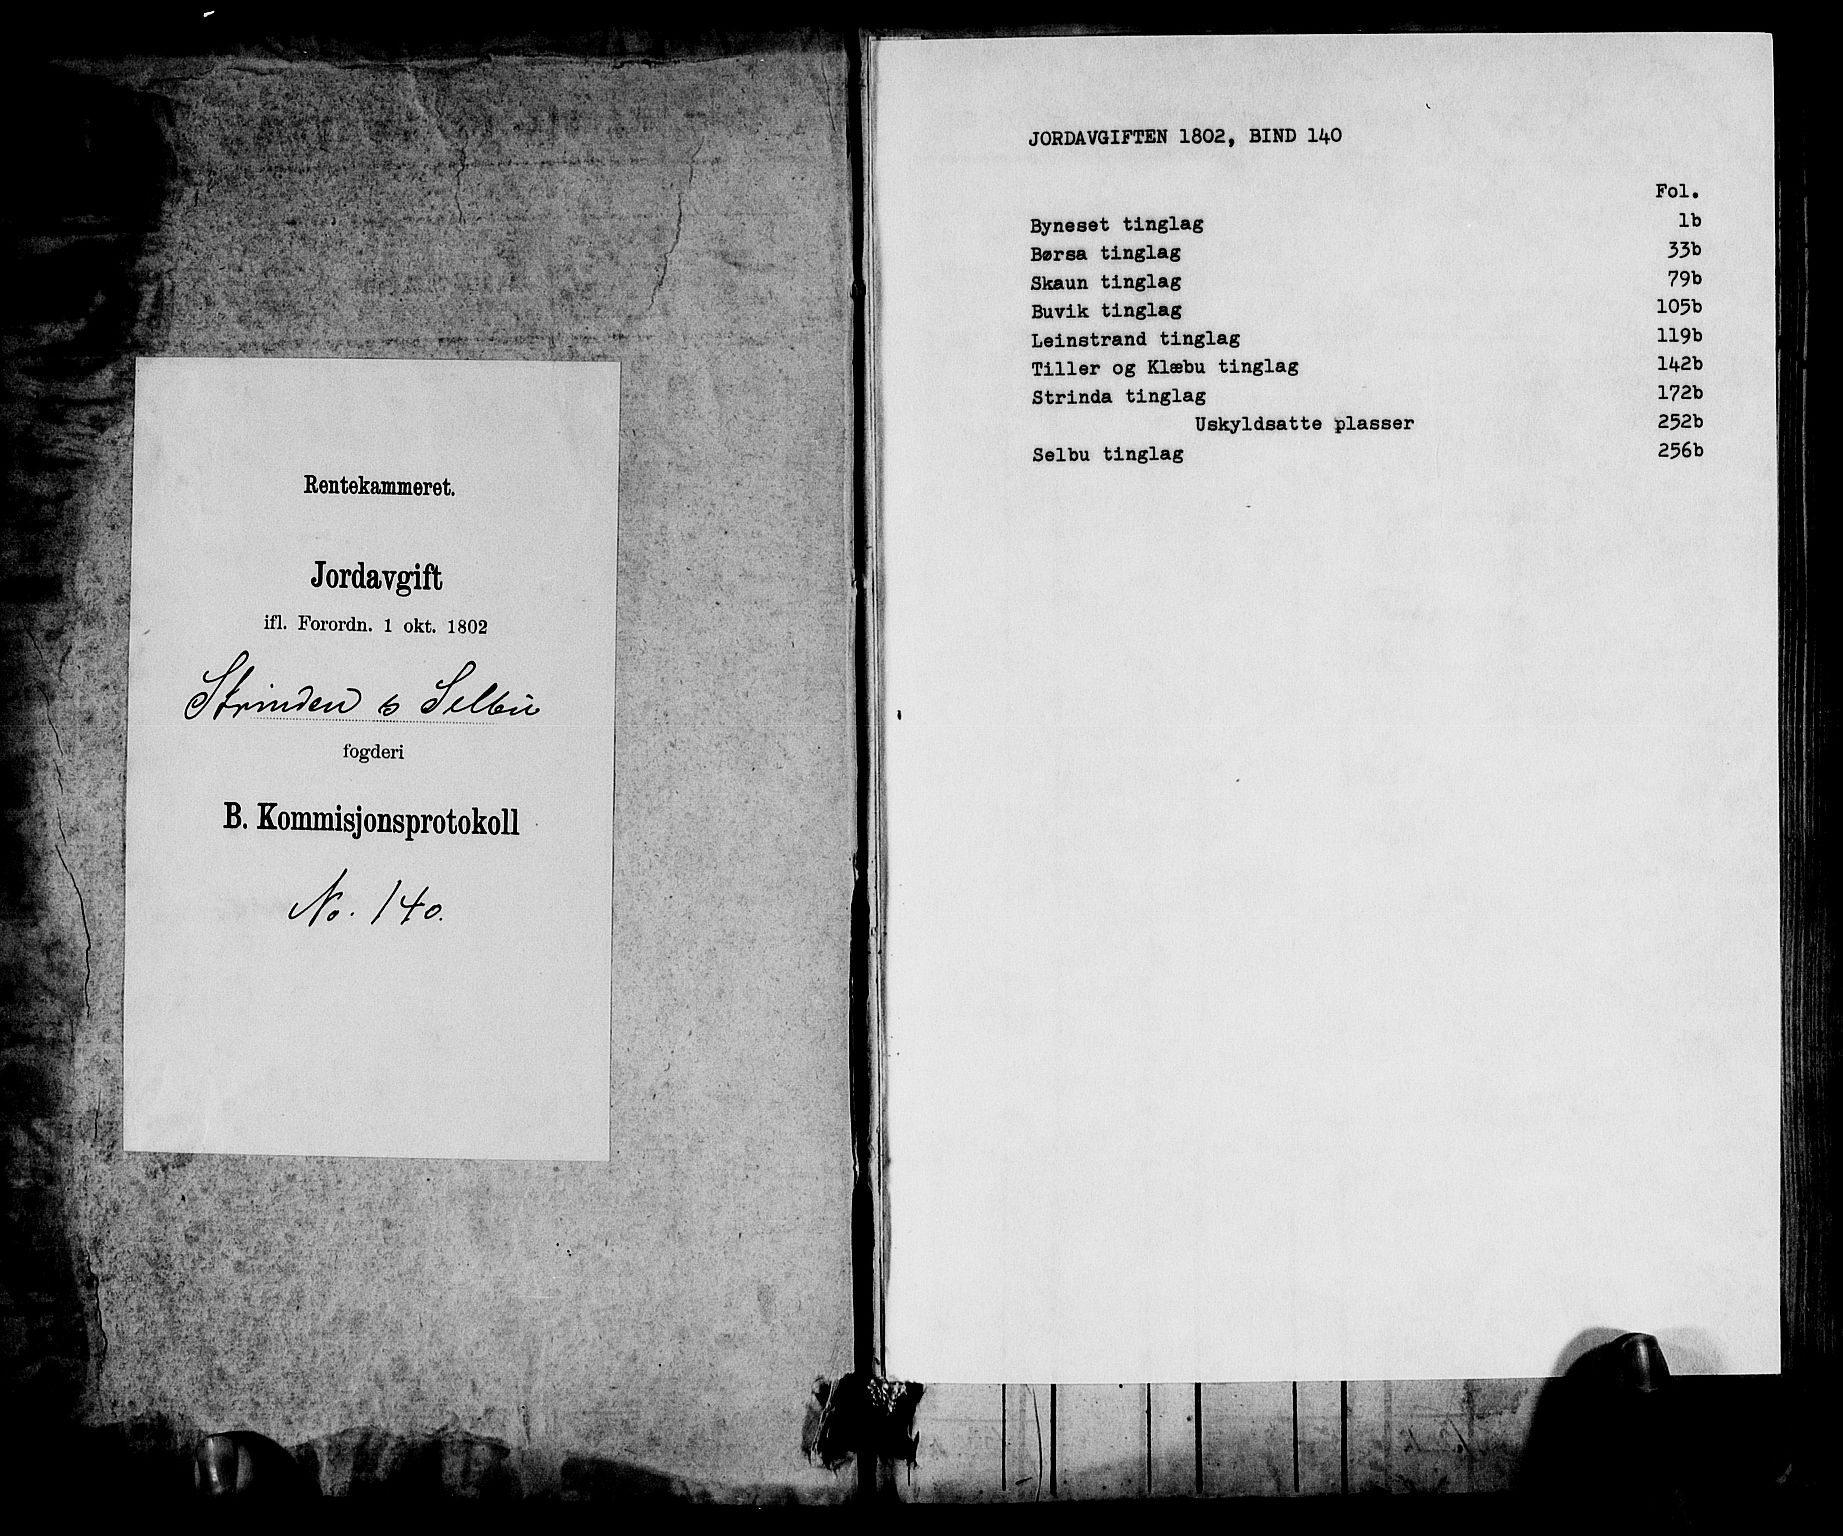 Rentekammeret.
Jordavgift
ifl. Forordn. 1 okt. 1802
Strinden & Selbu
fogderi
B. Kommisjonsprotokoll
No. 140.
JORDAVGIFTEN 1802, BIND 140
Fol.
Byneset tinglag 1b
Børsa tinglag 33b
Skaun tinglag 79b
Buvik tinglag 105b
Leinstrand tinglag 119b
Tiller og Klæbu tinglag 142b
Strinda tinglag 172b
Uskyldsatte plasser 252b
Selbu tinglag 256b